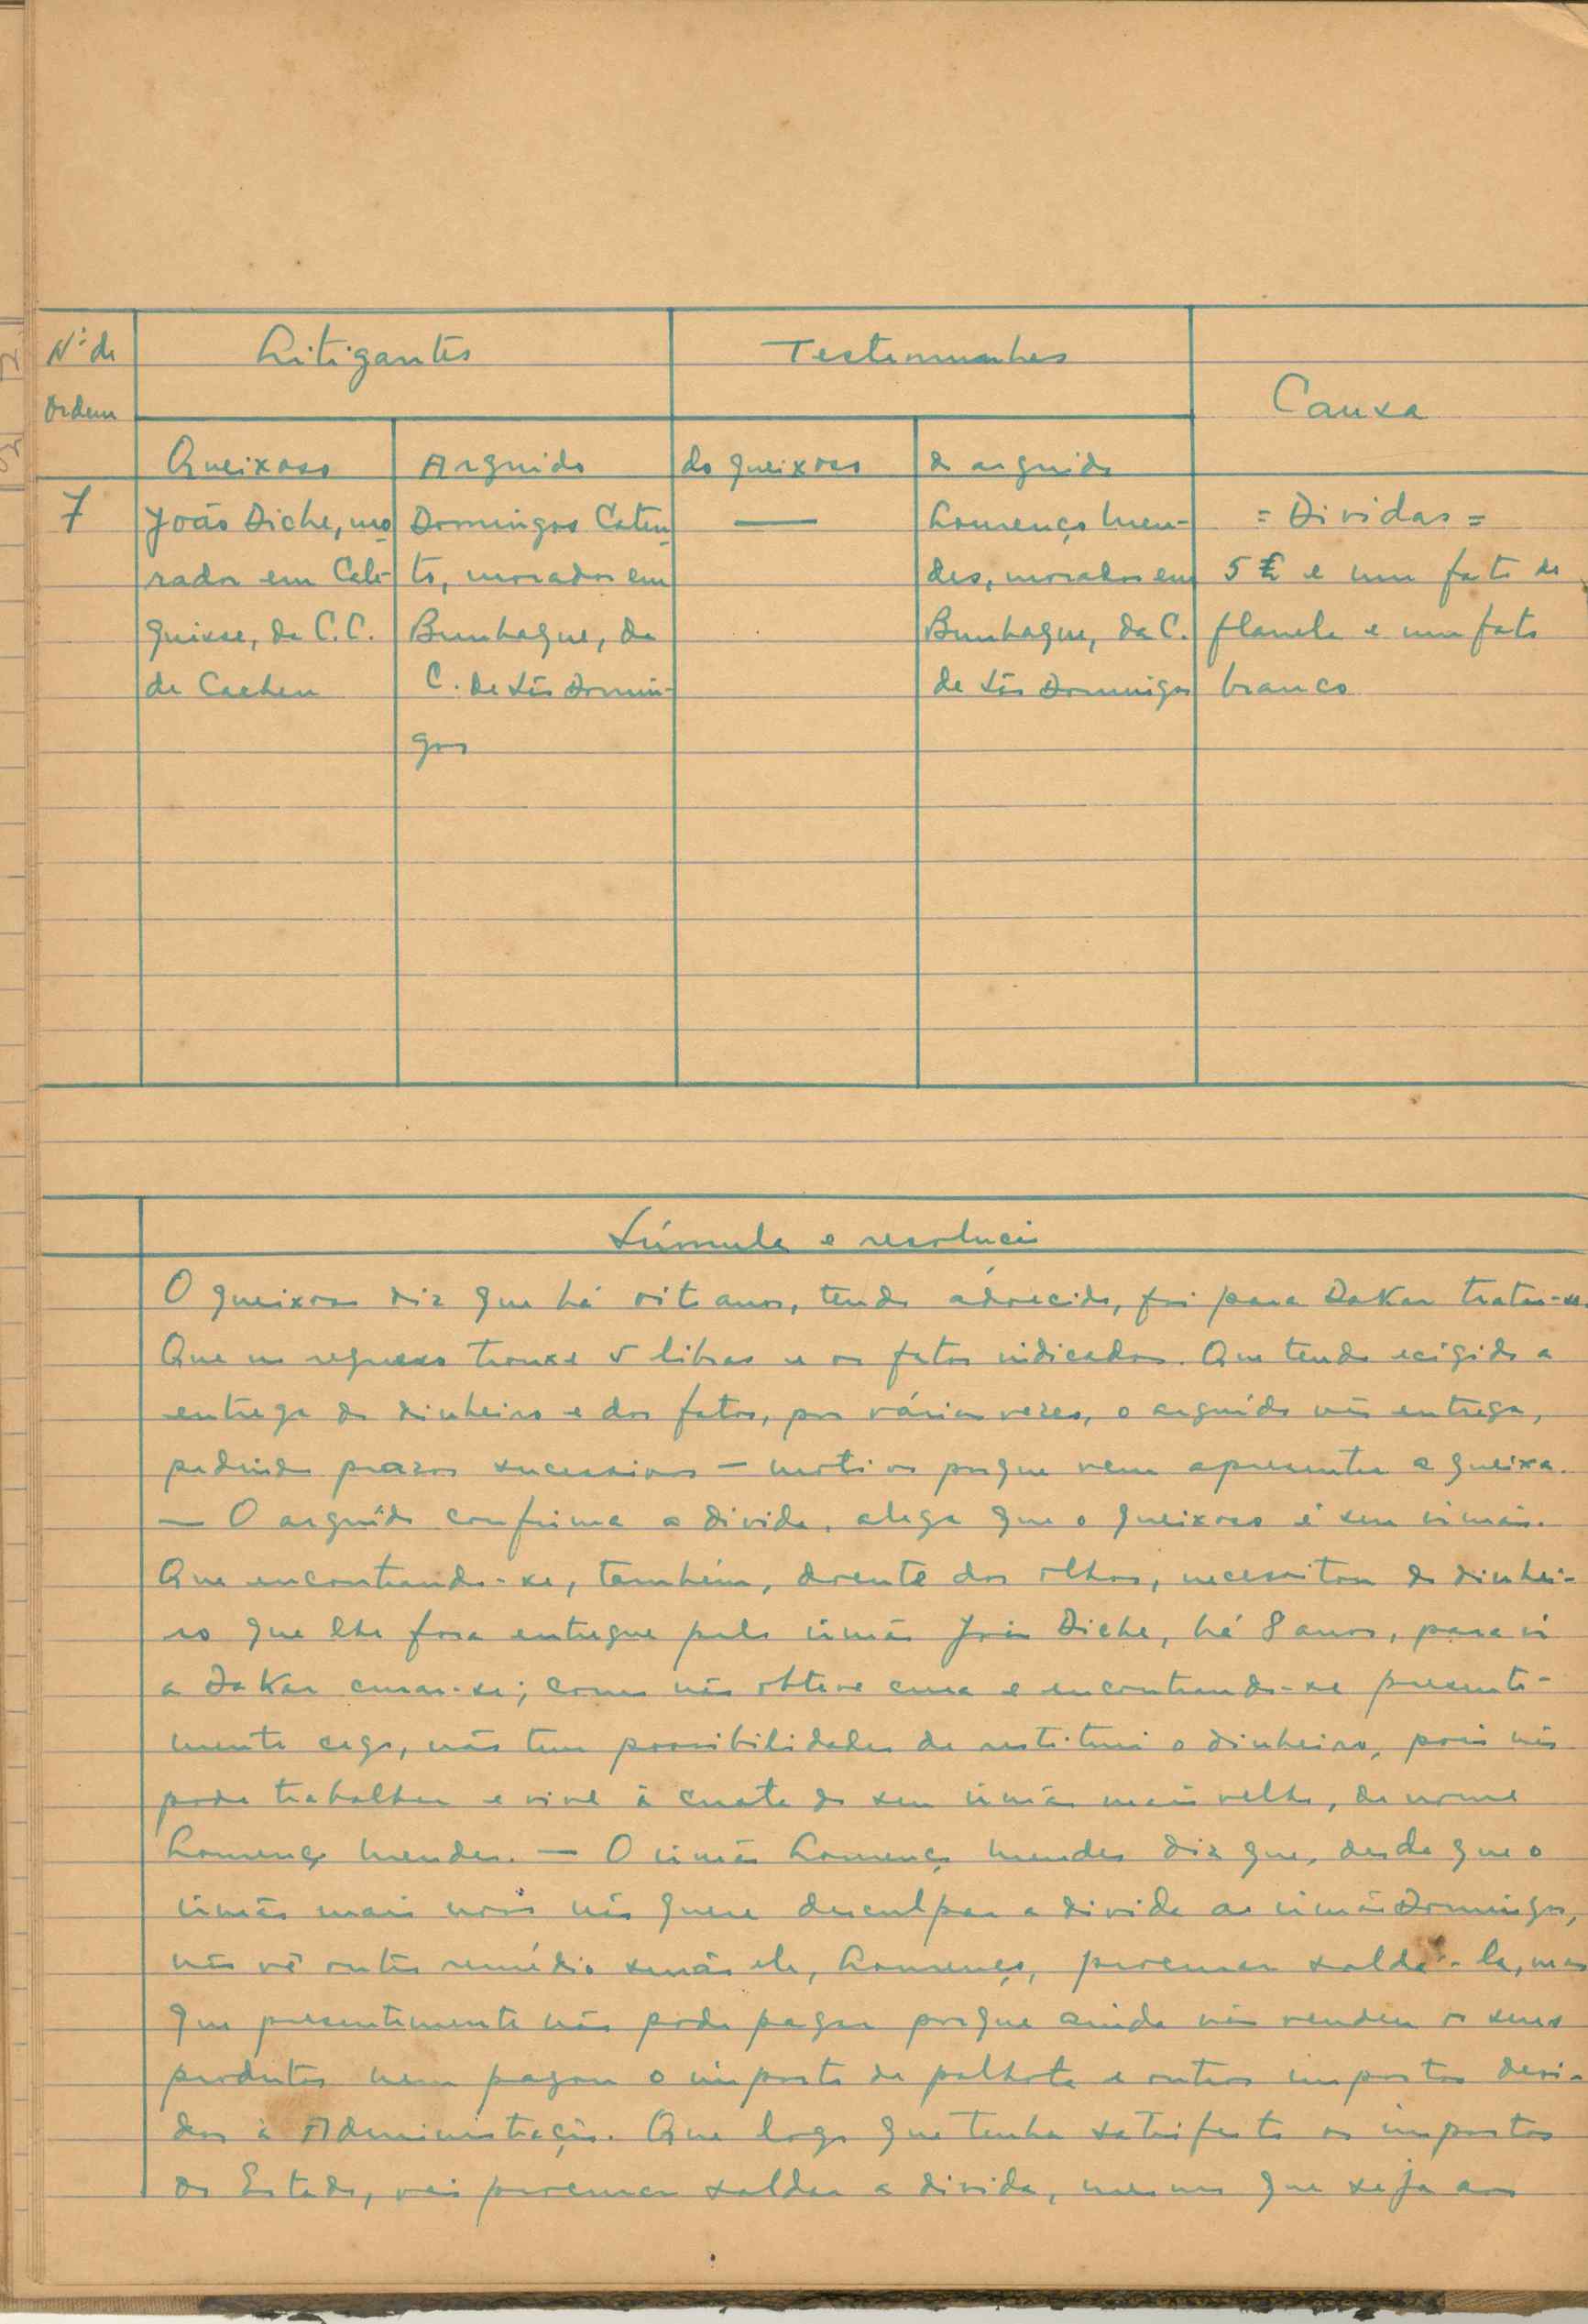 Nº de
Ordem
Litigantes
Testemunhas
Causa
Queixoso
Arguido
do queixoso
do arguido
7
João Diche, mo
rador em Cali-
quisse, da C.C.
de Cacheu
Domingos Caten
to, morador em
Bunhaque, da
C. de São Domin-
gos
—
Lourenço Men-
des, morador em
Bunhaque, da C.
de São Domingos
= Dividas =
5 £ e um fato de
flanela e um fato
branco
Súmula e resolução
O queixoso diz que há oito anos, tendo adoecido, foi para Dakar tratar-se.
Que no regresso trouxe 5 libras e os fatos indicados. Que tendo exigido a
entrega do dinheiro e dos fatos, por várias vezes, o arguido não entrega,
pedindo prazos sucessivos — motivo porque vem apresentar a queixa.
— O arguido confirma a divida, alega que o queixoso é seu irmão.
Que encontrando-se, também, doente dos olhos, necessitou do dinhei-
ro que lhe fora entregue pelo irmão João Diche, há 8 anos, para ir
a Dakar curar-se; como não obteve cura e encontrando-se presente-
mente cego, não tem possibilidades de restituir o dinheiro, pois não
pode trabalhar e vive à custa do seu irmão mais velho, de nome
Lourenço Mendes. — O irmão Lourenço Mendes diz que, desde que o
irmão mais novo não quere desculpar a divida ao irmão Domingos,
não vê outro remédio senão ele, Lourenço, procurar saldá-la, mas
que presentemente não pode pagar porque ainda não vendeu os seus
produtos nem pagou o imposto de palhota e outros impostos devi-
dos à Administração. Que logo que tenha satisfeito os impostos
do Estado, vai procurar saldar a divida, mesmo que seja aos